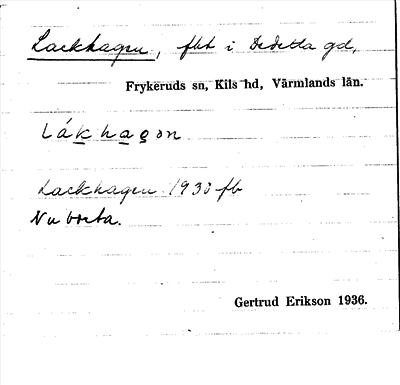 Lackhagen, fbt i Dedetta gd,
Frykeruds sn, Kils hd, Värmlands län.
Lákhagən
Lackhagen 1930 fb
Nu borta.
Gertrud Erikson 1936.